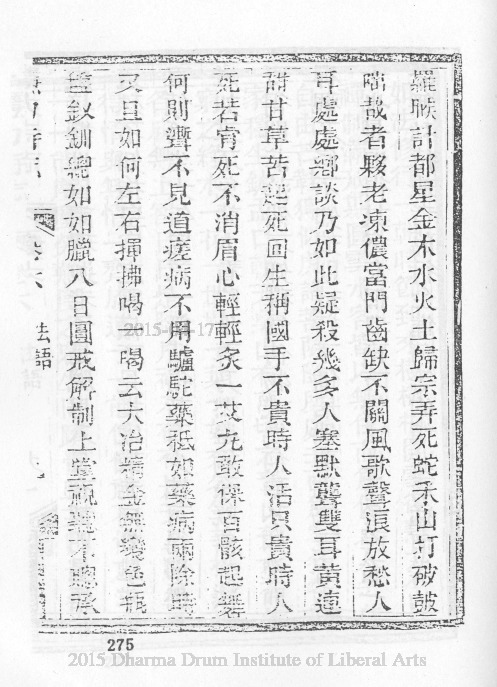 羅睺計都星金木水火土歸宗弄死蛇禾山打破鼓
咄哉者夥老凍儂當門齒缺不關風歌聲浪放愁人
耳處處鄉談乃如此疑殺幾多人塞默聾雙耳黃連
甜甘草苦起死回生稱國手不貴時人活只貴時人
死若肯死不消眉心輕輕炙一艾尤敢保百骸起舞
何則聾不見道瘥病不用驢駝藥祇如藥病兩除時
又且如何左右揮拂喝一喝云大冶精金無變色瓶
盤釵釧總如如臘八日圓戒解制上堂
卷六 法語
275
2015-04-17
2015 Dharma Drum Institute of Liberal Arts